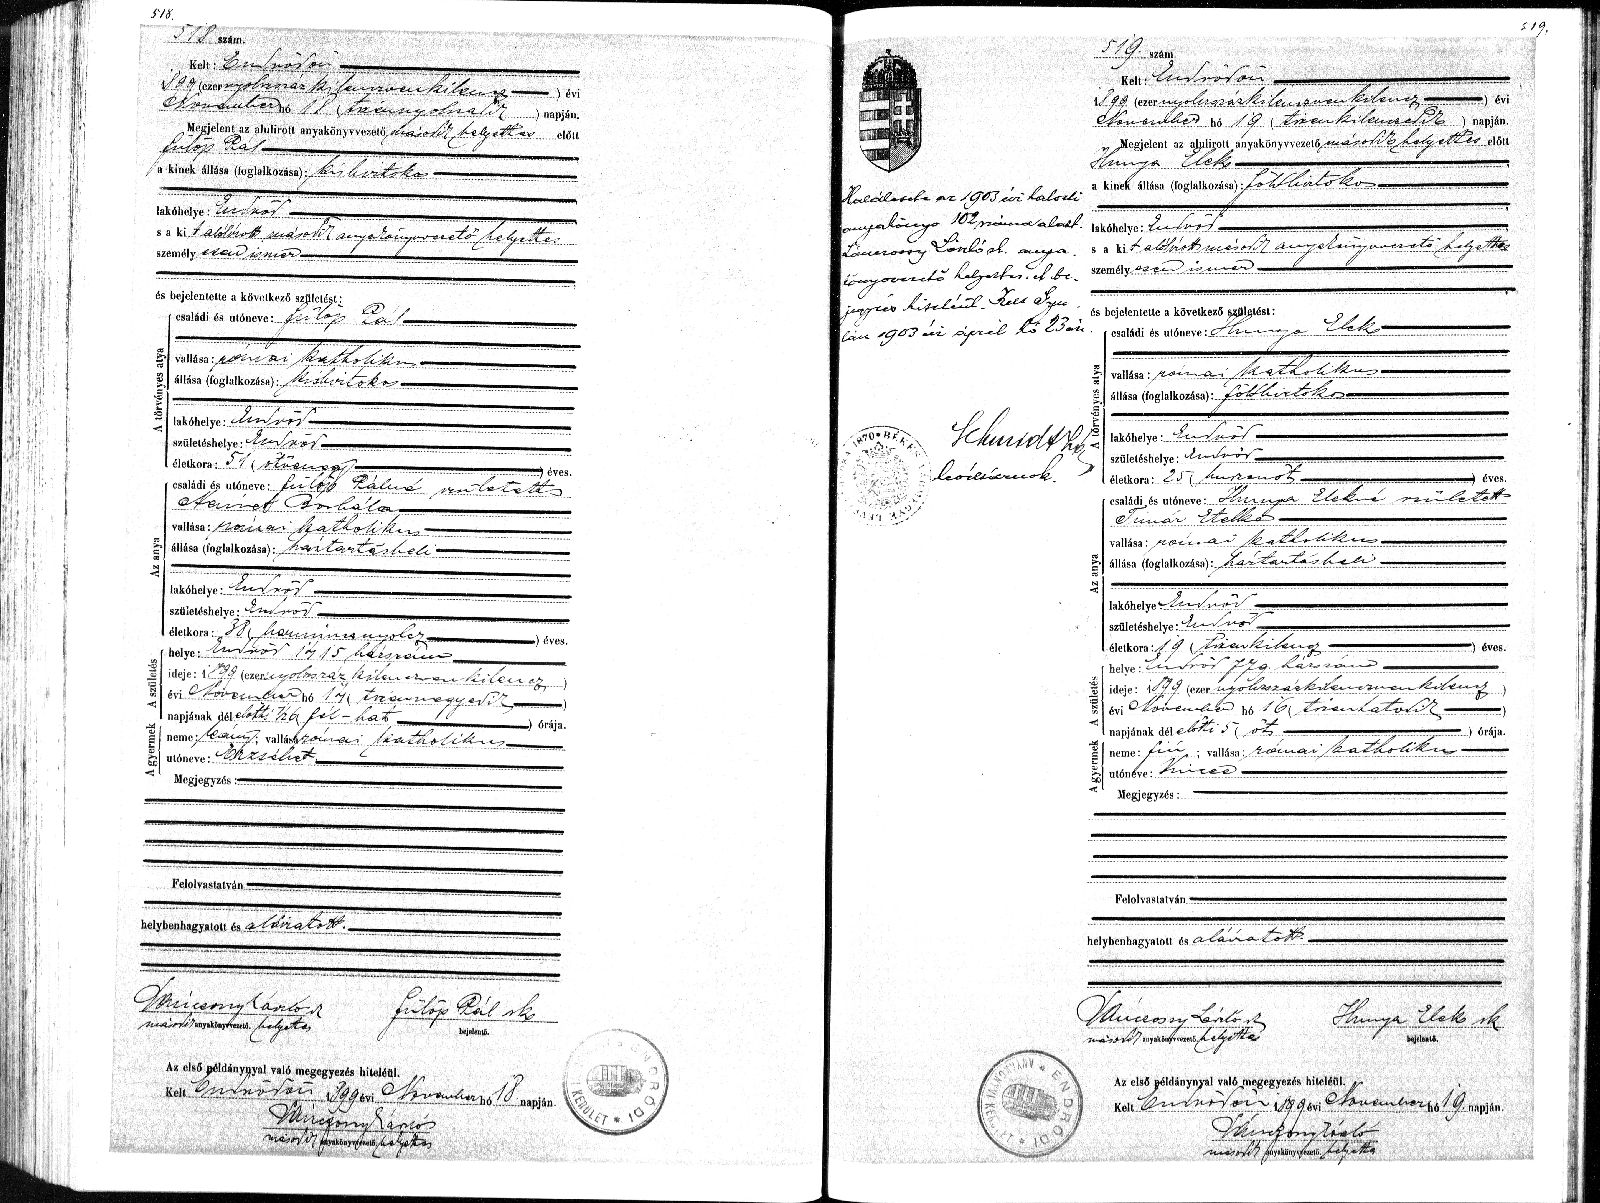 518.
518 szám.
Kelt: Endrődön
1899 (ezernyolczszázkilenczvenkilencz) évi
November hó 18 (tizennyolczadik) napján.
Megjelent az alulirott anyakönyvvezető, második helyettes előtt
Fülöp Pál
a kinek állása (foglalkozása): kisbirtokos
lakóhelye: Endrőd
s a kit alólirott második anyakönyvvezető helyettes
személyesen ismer
és bejelentette a következő születést:
A törvényes atya
családi és utóneve: Fülöp Pál
vallása: római katholikus
állása (foglalkozása): kisbirtokos
lakóhelye: Endrőd
születéshelye: Endrőd
életkora: 51 (ötvenegy) éves.
Az anya
családi és utóneve: Fülöp Pálné született
Borbála
vallása: római katholikus
állása (foglalkozása): háztartásbeli
lakóhelye: Endrőd
születéshelye: Endrőd
életkora: 38 (harmincznyolcz) éves.
A születés
helye: Endrőd 1715 házszám
ideje: 1899 (ezernyolczszázkilenczvenkilencz)
évi November hó 14 (tizennegyedik)
napjának dél előtti ½6 (fél-hat) órája.
A gyermek
neme: leány; vallása: római katholikus
utóneve: Erzsébet
Megjegyzés:
Felolvastatván
helybenhagyatott és aláiratott.
László
második anyakönyvvezető helyettes
Fülöp Pál sk
bejelentő.
Az első példánynyal való megegyezés hiteléül.
Kelt Endrődön 1899 évi November hó 18 napján.
László
második anyakönyvvezető helyettes
ENDRŐDI
KERÜLET
519.
519. szám
Kelt: Endrődön
1899 (ezernyolczszázkilenczvenkilencz) évi
November hó 19 (tizenkilenczedik) napján.
Megjelent az alulirott anyakönyvvezető, második helyettes előtt
Hunya Elek
a kinek állása (foglalkozása): földbirtokos
lakóhelye: Endrőd
s a kit alólirott második anyakönyvvezető helyettes
személyesen ismer
és bejelentette a következő születést:
A törvényes atya
családi és utóneve: Hunya Elek
vallása: római katholikus
állása (foglalkozása): földbirtokos
lakóhelye: Endrőd
születéshelye: Endrőd
életkora: 25 (huszonöt) éves.
Az anya
családi és utóneve: Hunya Elekné született
Timár Etelka
vallása: római katholikus
állása (foglalkozása): háztartásbeli
lakóhelye: Endrőd
születéshelye: Endrőd
életkora: 19 (tizenkilencz) éves.
A születés
helye: Endrőd 779. házszám
ideje: 1899 (ezernyolczszázkilenczvenkilencz)
évi November hó 16 (tizenhatodik)
napjának dél előtti 5 (öt) órája.
A gyermek
neme: fiú; vallása: római katholikus
utóneve: Vincze
Megjegyzés:
Felolvastatván
helybenhagyatott és aláiratott.
László
második anyakönyvvezető helyettes
Hunya Elek sk
bejelentő.
Az első példánynyal való megegyezés hiteléül.
Kelt Endrődön 1899 évi November hó 19. napján.
László
második anyakönyvvezető helyettes
ENDRŐDI
ANYAKÖNYVI
Halálesete az 1903 évi halotti
anyakönyv 102 száma alatt.
László sk. anya-
könyvvezető helyettes, ut be-
jegyzés hiteléül. Kelt Gyu-
lán 1903 évi április hó 23 án.
Schmidt
1870 BÉKÉS